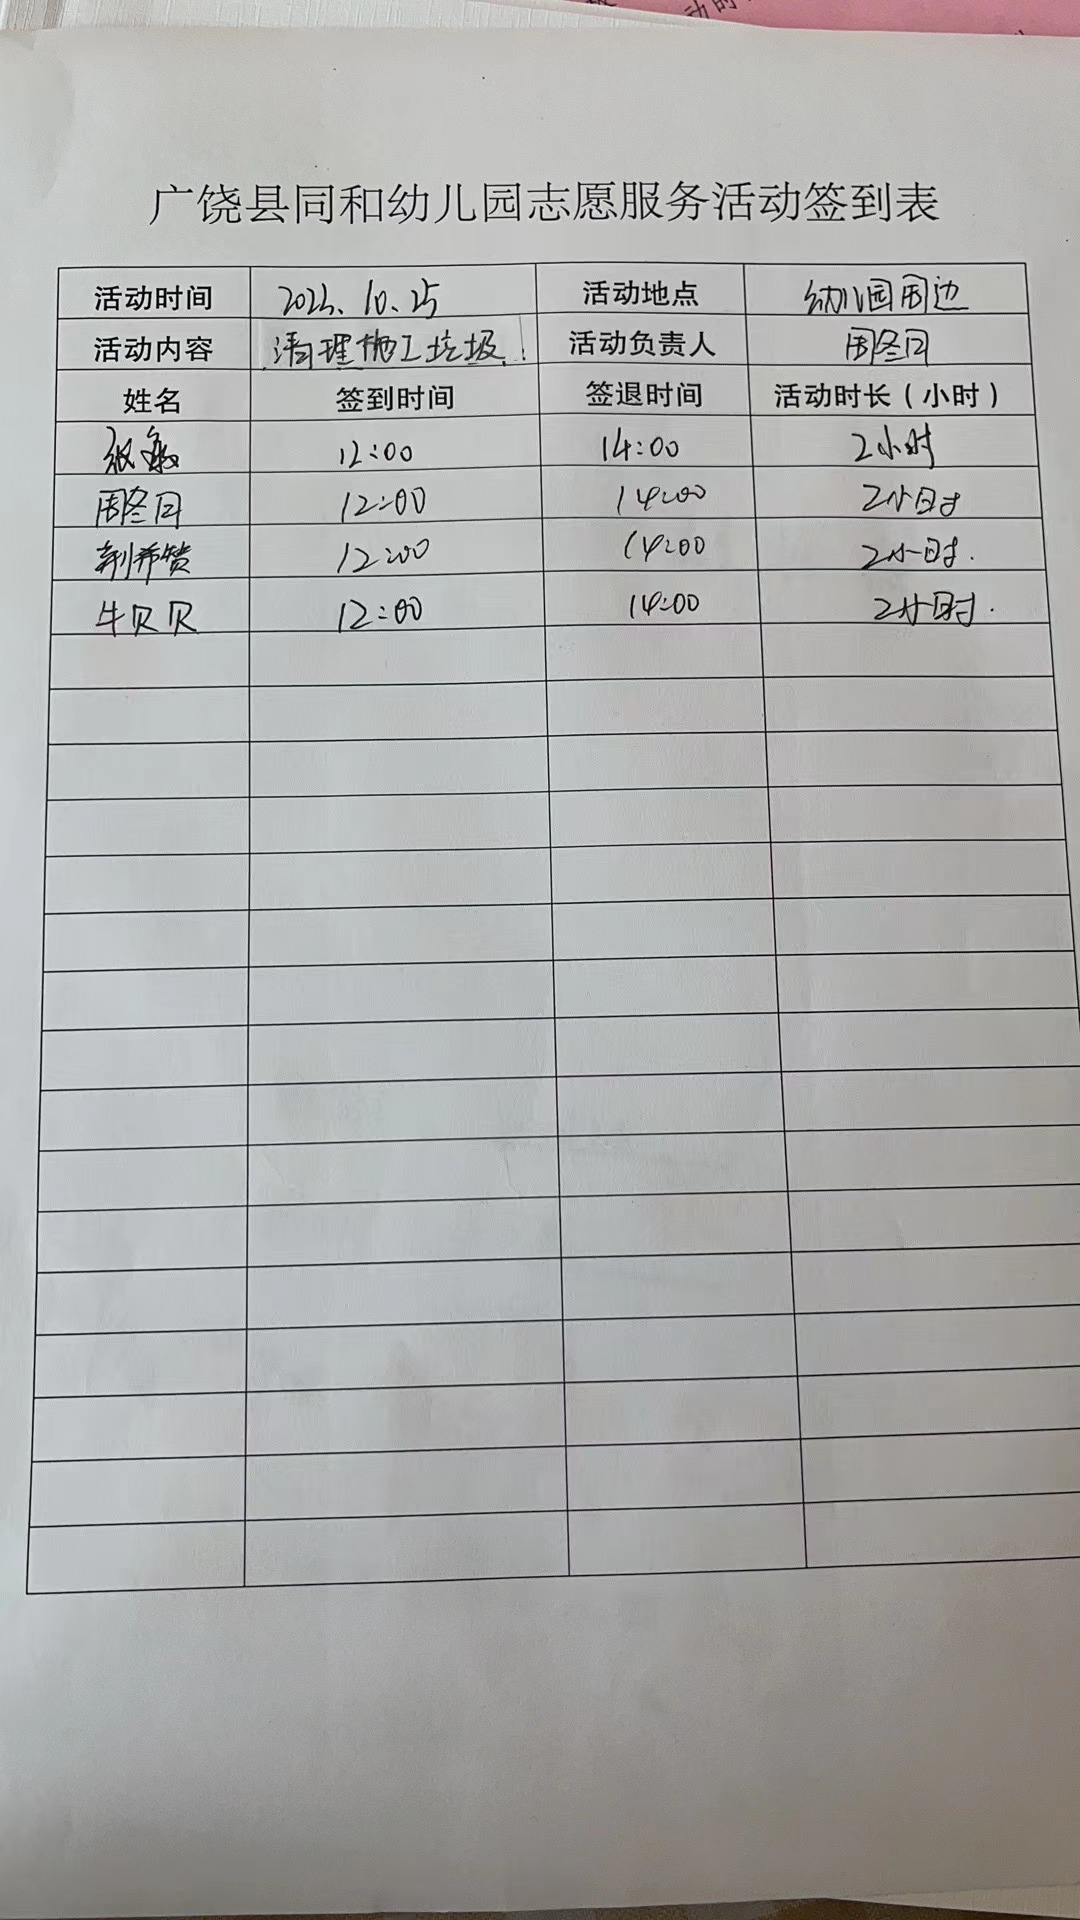 动的
广饶县同和幼儿园志愿服务活动签到表
活动时间 10.25 活动地点 幼儿园周边
活动内容 清理施工垃圾 活动负责人 周冬日
姓名 签到时间 签退时间 活动时长（小时）
12:00 14:00 2小时
周冬日 12:00 14:00 2小时
荆希赞 12:00 14:00 2小时.
牛贝贝 12:00 14:00 2小时.